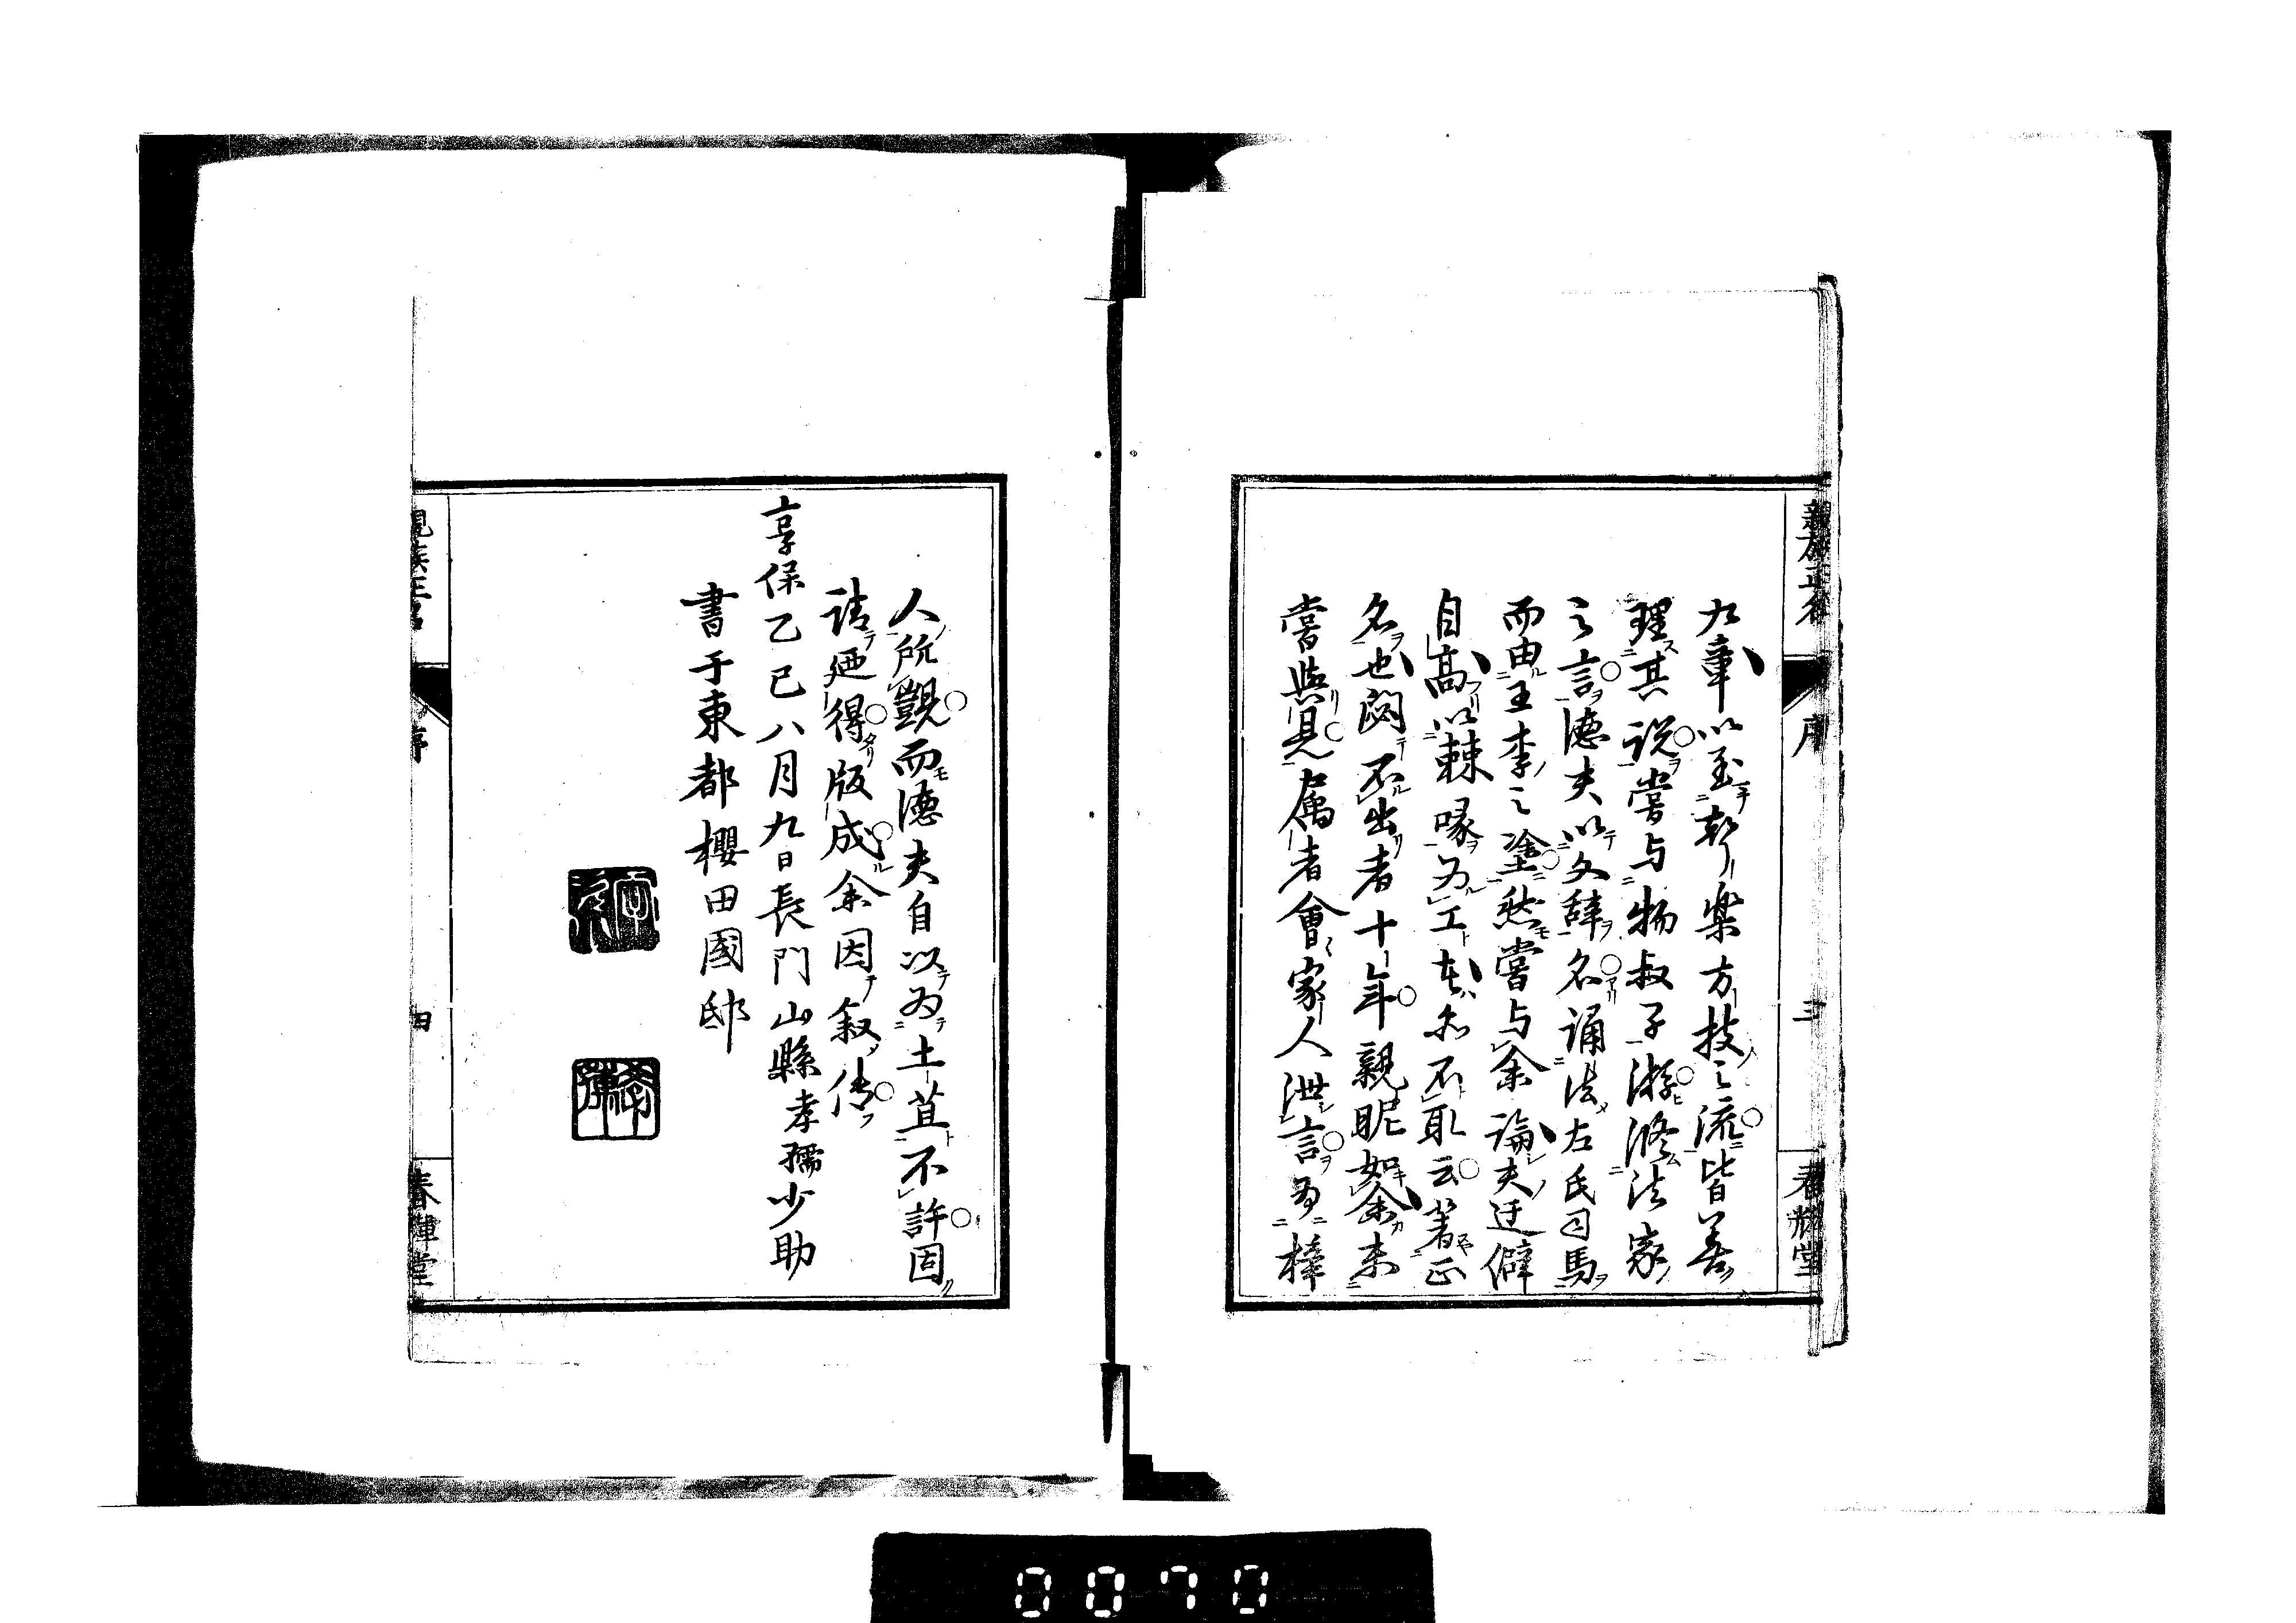 親族正名 序 三 春暉堂
九章以至劇樂方技之流皆善
理其説嘗与物叔子游脩法家
之言德夫以文辞名誦法左氏司馬
而由王李之塗然嘗与余論夫迂僻
自高以棘喙為工者亦不取云著正
名也閟不出者十年親昵如余未
嘗與見属者會家人洪言為梓
人所覬而德夫自以為土苴不許固
請廼得版成余因叙傳
享保乙巳八月九日長門山縣孝孺少助
書于東都櫻田國邸
親族正名 序 四 春暉堂
0070